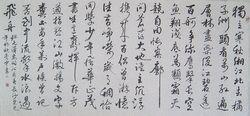 獨立寒秋湘江北去橘
子洲頭看萬山紅遍
層林盡染漫江碧透
百舸爭流鷹擊長空
魚翔淺底萬類霜天
競自由悵寥廓
問蒼茫大地誰主沉浮
攜來百侶曾游憶
往昔崢嶸歲月稠恰
同學少年風華正茂
書生意氣揮斥方
遒指點江山激揚文字
糞土當年萬戶侯曾記
否到中流擊水浪遏
飛舟